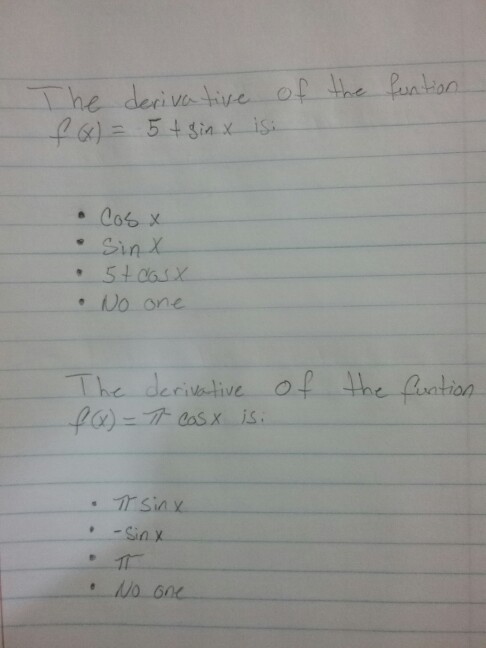 The derivative of the funtion
f(x) = 5 + sin x is:
• Cos x
• Sin X
• 5 + cos X
• No one
The derivative of the funtion
f(x) = π cos x is:
• π sin x
• -sin x
• π
• No one